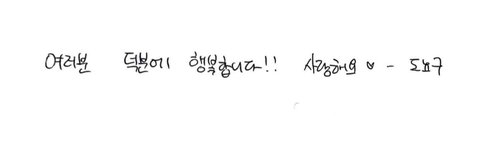 여러분 덕분에 행복합니다!! 사랑해요 ♥ - 도뇨구